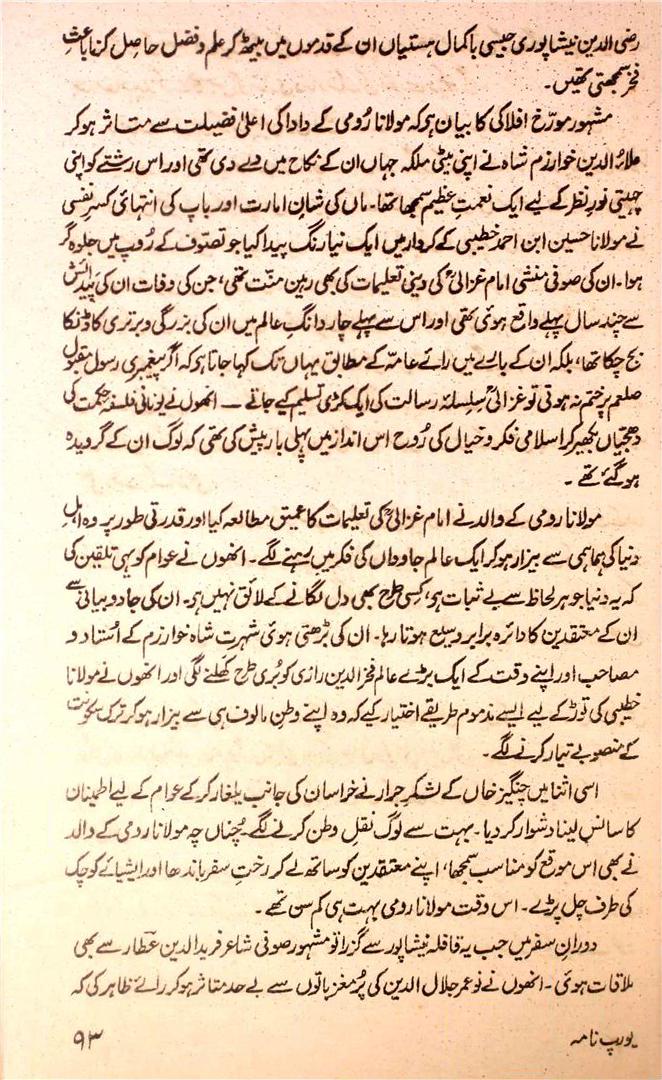 رضی الدین نیشاپوری جیسی باکمال ہستیاں ان کے قدموں میں بیٹھ کر علم و فضل حاصل کرنا باعثِ
فخر سمجھتی تھیں۔
مشہور مورّخ افلاکی کا بیان ہے کہ مولانا رُومی کے دادا کی اعلیٰ فضیلت سے متاثر ہو کر
علاؤ الدین خوارزم شاہ نے اپنی بیٹی ملکہ جہاں ان کے نکاح میں دے دی تھی اور اس رشتے کو اپنی
چہیتی نورِ نظر کے لیے ایک نعمتِ عظیم سمجھا تھا۔ ماں کی شانِ امارت اور باپ کی انتہائی کسرِ نفسی
نے مولانا حسین ابن احمد خطیبی کے کردار میں ایک نیا رنگ پیدا کیا جو تصوّف کے رُوپ میں جلوہ گر
ہوا۔ ان کی صوفی منشی امام غزالیؒ کی دینی تعلیمات کی بھی رہینِ منّت تھی، جن کی وفات ان کی پیدائش
سے چند سال پہلے واقع ہوئی تھی اور اس سے پہلے چار دانگِ عالم میں ان کی بزرگی و برتری کا ڈنکا
بج چکا تھا، بلکہ ان کے بارے میں رائے عامّہ کے مطابق یہاں تک کہا جاتا ہے کہ اگر پیغمبری رسولِ مقبول
صلعم پر ختم نہ ہوتی تو غزالیؒ سِلسلۂ رسالت کی ایک کڑی تسلیم کیے جاتے — انھوں نے یونانی فلسفۂ حکمت کی
دھجیاں بکھیر کر اسلامی فکر و خیال کی رُوح اس انداز میں پہلی بار پیش کی تھی کہ لوگ ان کے گرویدہ
ہو گئے تھے۔
مولانا رومی کے والد نے امام غزالیؒ کی تعلیمات کا عمیق مطالعہ کیا اور قدرتی طور پر وہ اہلِ
دنیا کی ہماہمی سے بیزار ہو کر ایک عالمِ جاوداں کی فکر میں رہنے لگے۔ انھوں نے عوام کو یہی تلقین کی
کہ یہ دنیا جو ہر لحاظ سے بے ثبات ہے، کِسی طرح بھی دل لگانے کے لائق نہیں ہے۔ ان کی جادو بیانی سے
ان کے معتقدین کا دائرہ برابر وسیع ہوتا رہا۔ ان کی بڑھتی ہوئی شہرت شاہ خوارزم کے اُستاد و
مصاحب اور اپنے وقت کے ایک بڑے عالم فخرالدین رازی کو بُری طرح کھلنے لگی اور انھوں نے مولانا
خطیبی کی توڑ کے لیے ایسے مذموم طریقے اختیار کیے کہ وہ اپنے وطنِ مالوف ہی سے بیزار ہو کر ترکِ سکونت
کے منصوبے تیار کرنے لگے۔
اسی اثنا میں چنگیز خاں کے لشکرِ جرار نے خراسان کی جانب یلغار کر کے عوام کے لیے اطمینان
کا سانس لینا دشوار کر دیا۔ بہت سے لوگ نقلِ وطن کرنے لگے۔ چُناں چہ مولانا رومی کے والد
نے بھی اس موقع کو مناسب سمجھا، اپنے معتقدین کو ساتھ لے کر رختِ سفر باندھا اور ایشیائے کوچک
کی طرف چل پڑے۔ اس وقت مولانا رومی بہت ہی کم سن تھے۔
دورانِ سفر میں جب یہ قافلہ نیشاپور سے گزرا تو مشہور صوفی شاعر فریدالدین عطّار سے بھی
ملاقات ہوئی۔ انھوں نے نو عمر جلال الدین کی پُر مغز باتوں سے بے حد متاثر ہو کر رائے ظاہر کی کہ
یورپ نامہ
۹۳